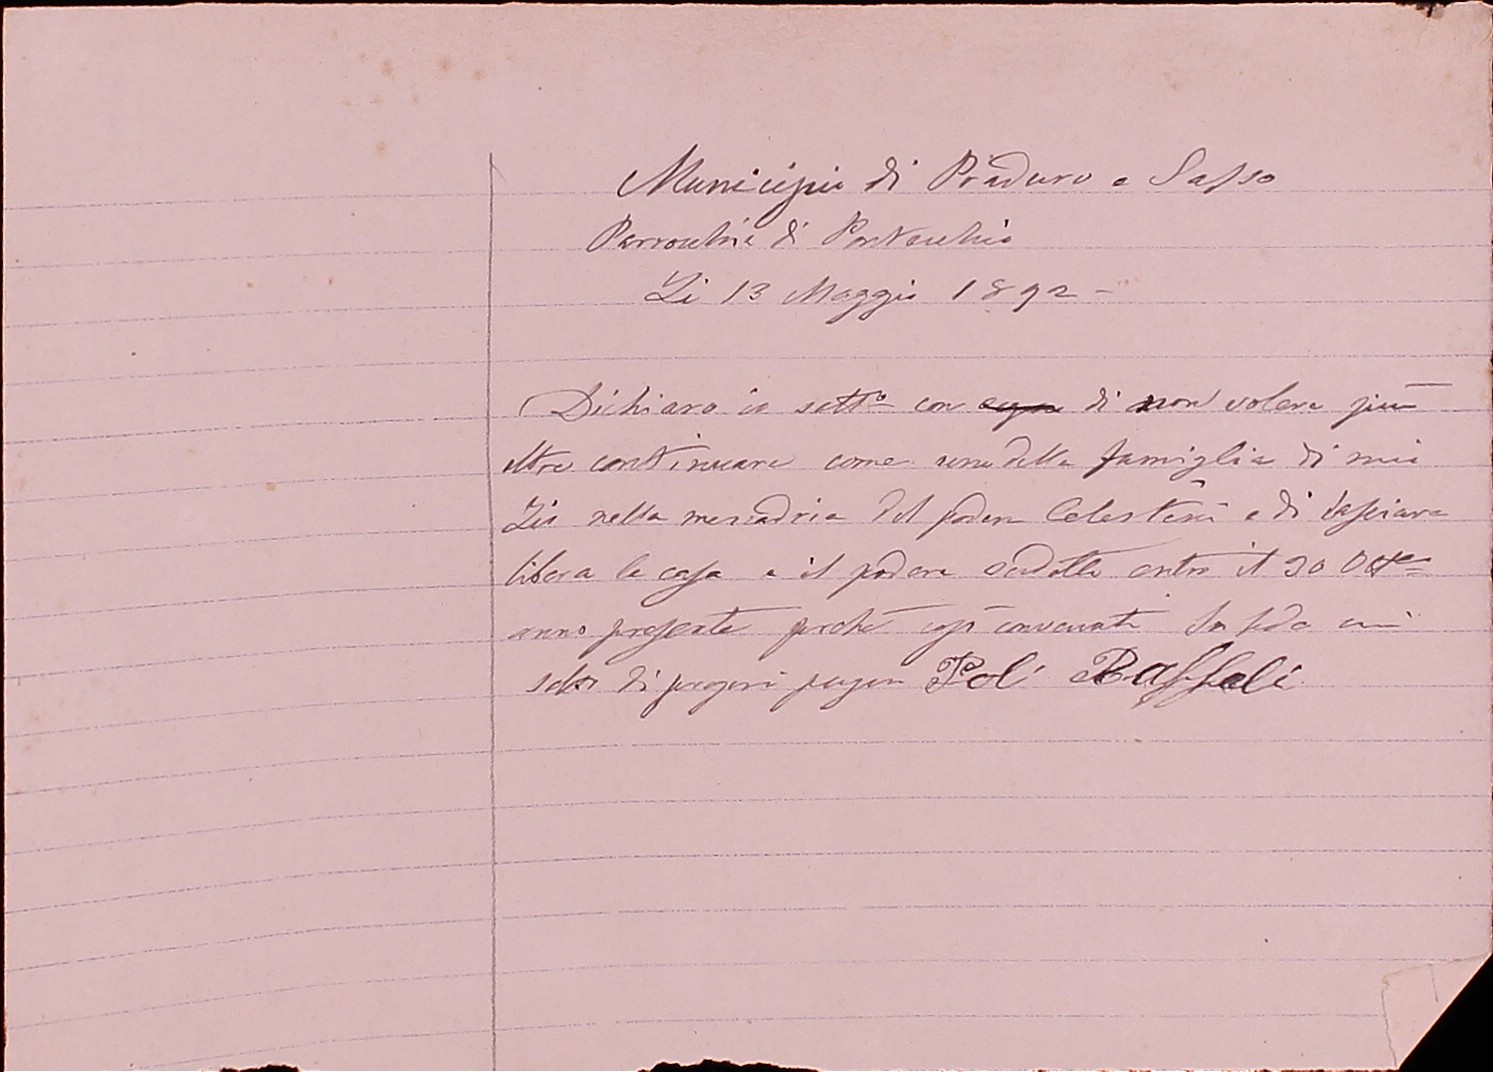 Municipio di Praduro e Sasso
Parrocchia di Pontecchio
Li 13 Maggio 1892 -
Dichiaro io sott° con di non volere più
oltre continuare come uno della famiglia di mio
Zio nella mezzadria del podere Celestini e di lasciare
libera la casa e il podere sudetto entro il 30 Ott
anno presente perché così convenuti In fede mi
Poli Raffaele